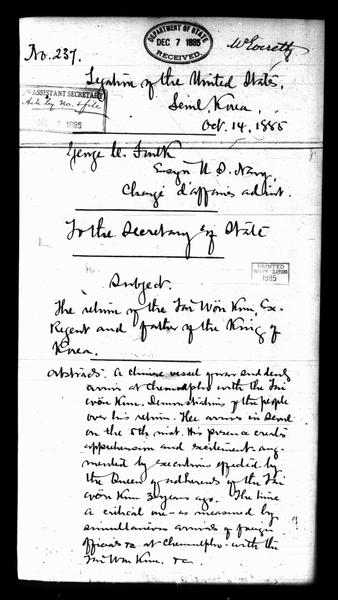 No. 237.
DEPARTMENT OF STATE
DEC 7 1885
RECEIVED.
Legation of the United States,
Seoul, Korea,
Oct. 14, 1885
ASSISTANT SECRETARY
Ack by No. & file
1885
George C. Foulk
Ensign U.S. Navy,
Chargé d'affaires ad int.
To the Secretary of State
PRINTED
1885
Subject.
The return of the Tai Wön Kun, Ex-
Regent and father of the King of
Korea.
Abstract. A Chinese vessel of war suddenly
arrives at Chemulpho with the Tai
Wön Kun. Demonstrations of the people
over his return. He arrives in Seoul
on the 5th inst. His presence creates
apprehension and excitement aug-
mented by executions effected by
the Queen of adherents of the Tai
Wön Kun 3 years ago. The time
a critical one - as measured by
simultaneous arrivals of foreign
officials &c at Chemulpho with the
Tai Wön Kun. &c.